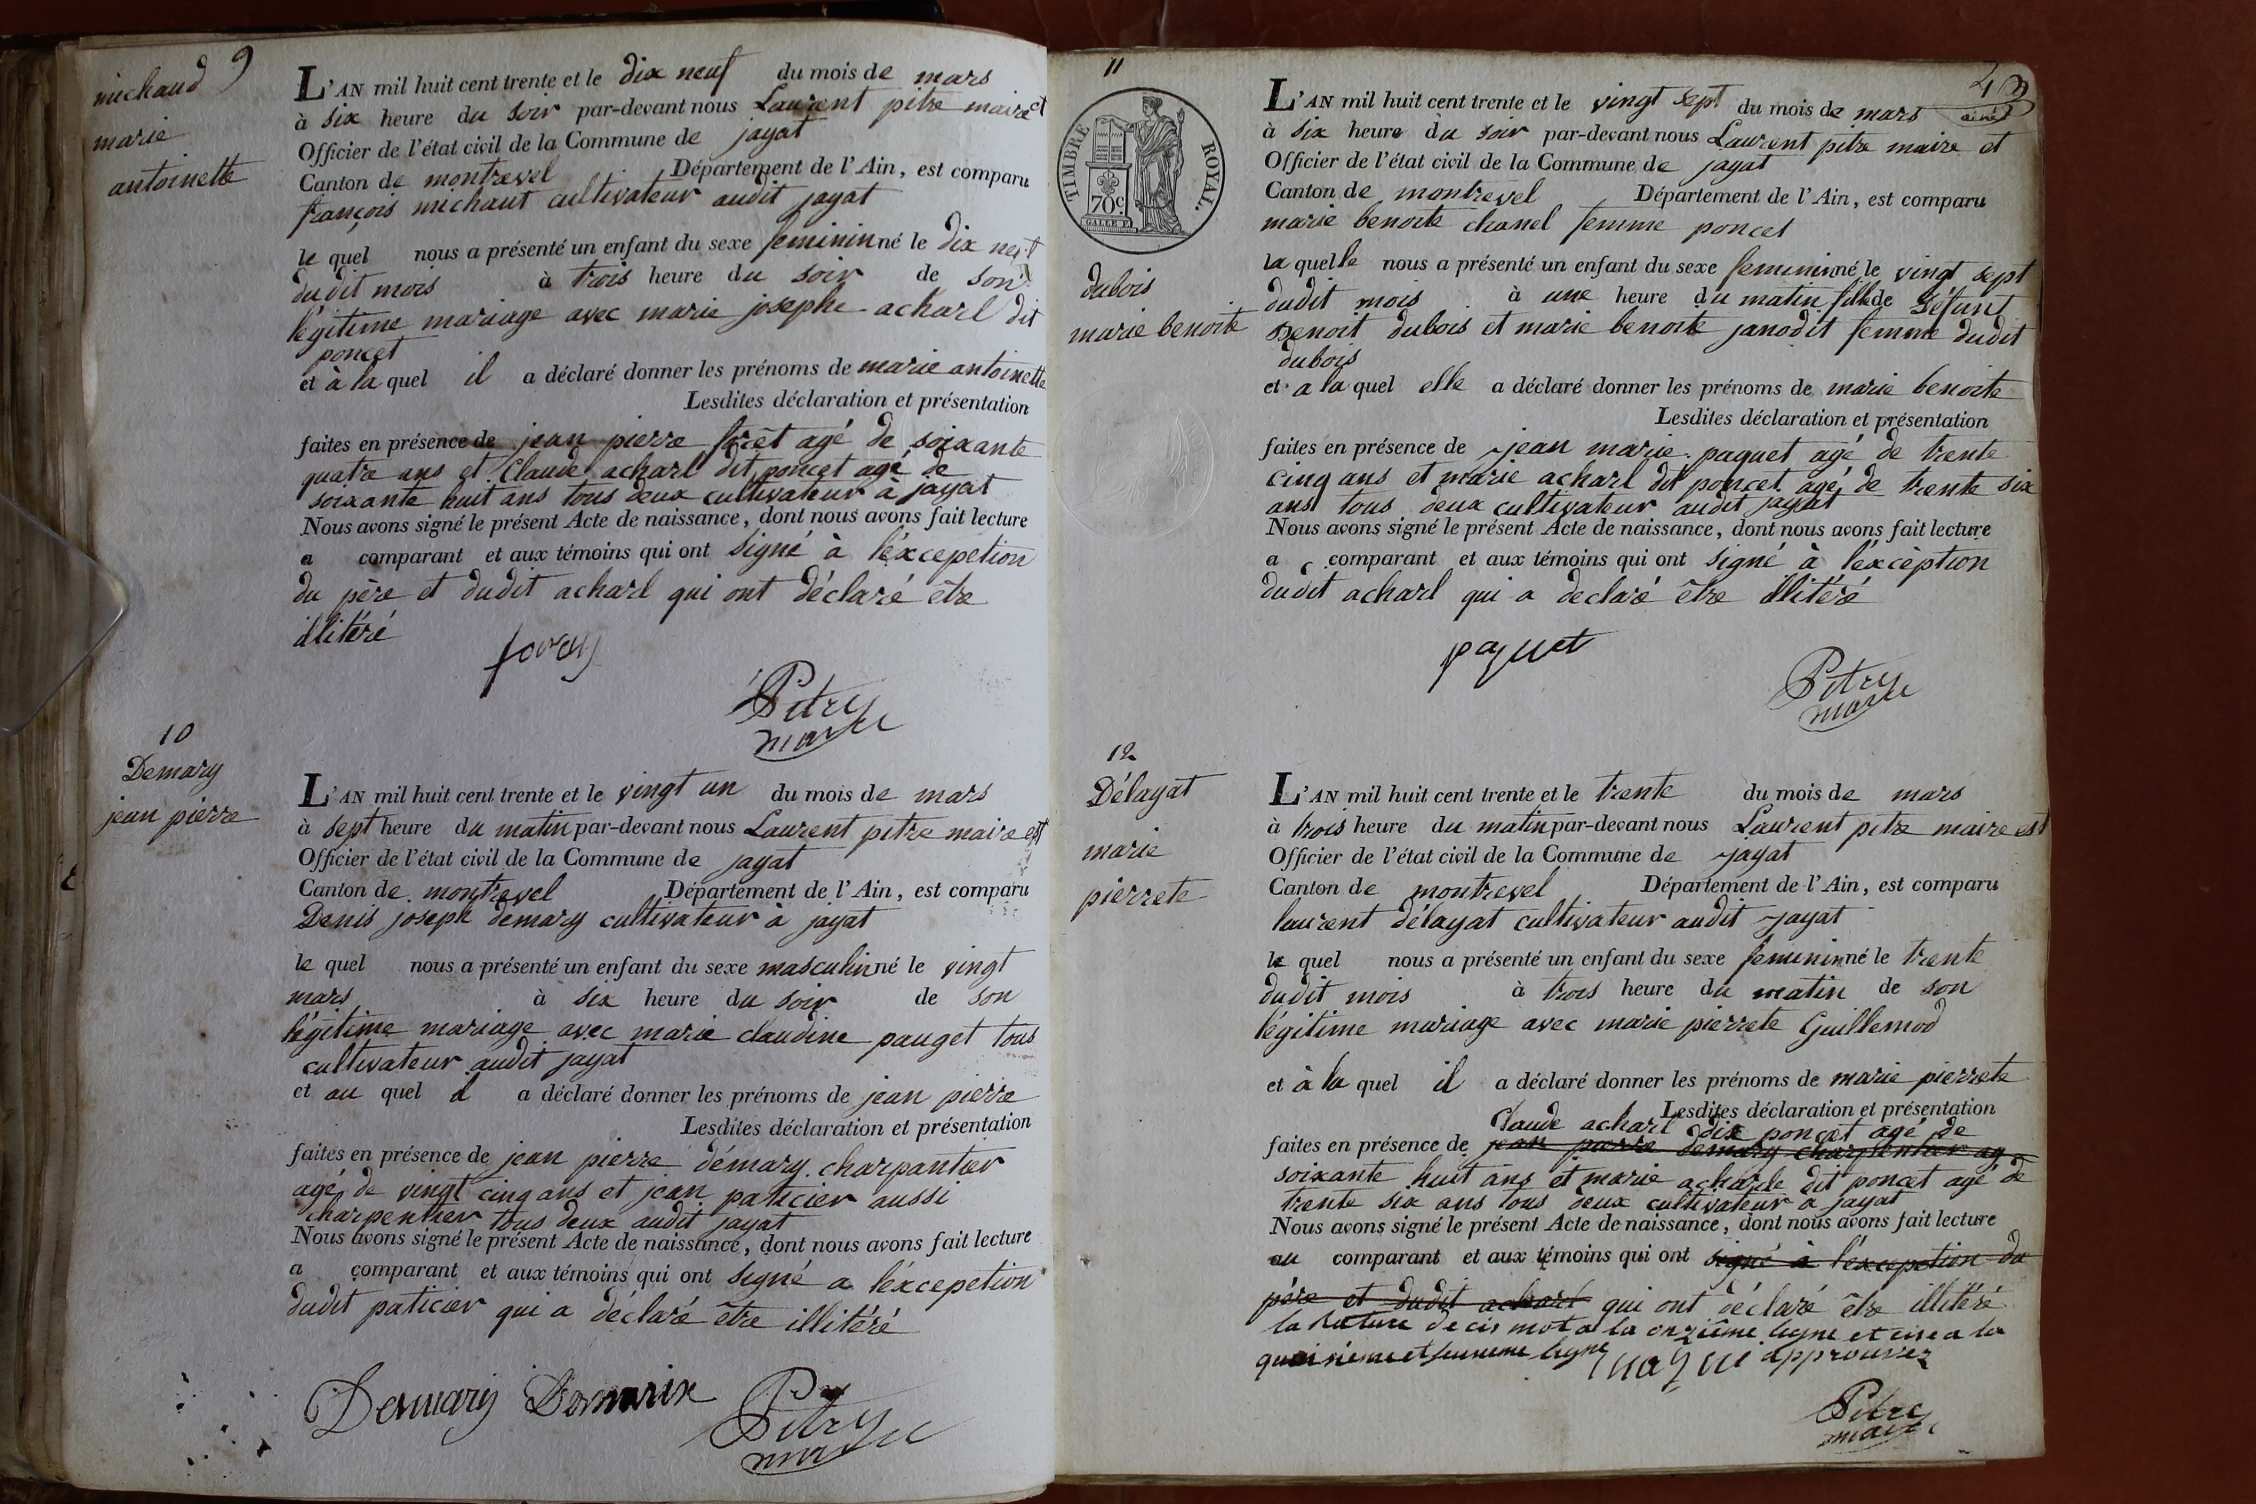 9
michaud
marie
antoinette
L'AN mil huit cent trente et le dix neuf du mois de mars
à six heure du soir par-devant nous Laurent pitre maire et
Officier de l'état civil de la Commune de jayat
Canton de montrevel Département de l'Ain, est comparu
françois michaut cultivateur audit jayat
le quel nous a présenté un enfant du sexe feminin né le dix neuf
dudit mois à trois heure du soir de son
légitime mariage avec marie josephe acharl dit
poncet
et à la quel il a déclaré donner les prénoms de marie antoinette
Lesdites déclaration et présentation
faites en présence de jean pierre forêt agé de soixante
quatre ans et Claude acharl dit poncet agé de
soixante huit ans tous deux cultivateur à jayat
Nous avons signé le présent Acte de naissance, dont nous avons fait lecture
a comparant et aux témoins qui ont signé à l'éxcepetion
du père et dudit acharl qui ont déclaré être
illitéré
Pitre
maire
10
Demary
jean pierre
L'AN mil huit cent trente et le vingt un du mois de mars
à sept heure du matin par-devant nous Laurent pitre maire est
Officier de l'état civil de la Commune de jayat
Canton de montrevel Département de l'Ain, est comparu
Denis joseph demary cultivateur à jayat
le quel nous a présenté un enfant du sexe masculin né le vingt
mars à six heure du soir de son
légitime mariage avec marie claudine pauget tous
cultivateur audit jayat
et au quel il a déclaré donner les prénoms de jean pierre
Lesdites déclaration et présentation
faites en présence de jean pierre démary charpantier
agé de vingt cinq ans et jean paticier aussi
charpentier tous deux audit jayat
Nous avons signé le présent Acte de naissance, dont nous avons fait lecture
a comparant et aux témoins qui ont signé a l'éxcepetion
dudit paticier qui a déclaré être illitéré
Demary
Pitre
maire
11
TIMBRE ROYAL.
70c
dubois
marie benoite
L'AN mil huit cent trente et le vingt sept du mois de mars
à six heure du soir par-devant nous Laurent pitre maire et
Officier de l'état civil de la Commune de jayat
Canton de montrevel Département de l'Ain, est comparu
marie benoite chanel femme poncet
la quelle nous a présenté un enfant du sexe feminin né le vingt sept
dudit mois à une heure du matin fille de Défunt
Benoit dubois et marie benoite janodit femme dudit
dubois
et a la quel elle a déclaré donner les prénoms de marie benoite
Lesdites déclaration et présentation
faites en présence de jean marie paquet agé de trente
cinq ans et marie acharl dit poncet agé de trente six
ans tous deux cultivateur audit jayat
Nous avons signé le présent Acte de naissance, dont nous avons fait lecture
a comparant et aux témoins qui ont signé à l'éxcèption
dudit acharl qui a déclaré être illitéré
paquet
Pitre
maire
12
Délayat
marie
pierrete
L'AN mil huit cent trente et le trente du mois de mars
à trois heure du matin par-devant nous Laurent pitre maire est
Officier de l'état civil de la Commune de jayat
Canton de montrevel Département de l'Ain, est comparu
laurent délayat cultivateur audit jayat
le quel nous a présenté un enfant du sexe feminin né le trente
dudit mois à trois heure du matin de son
légitime mariage avec marie pierrete Guillemod
et à la quel il a déclaré donner les prénoms de marie pierrete
Lesdites déclaration et présentation
Claude acharl dit poncet agé de
faites en présence de jean pierre demary charpentier ag
soixante huit ans et marie acharle dit poncet agé de
trente six ans tous deux cultivateur à jayat
Nous avons signé le présent Acte de naissance, dont nous avons fait lecture
au comparant et aux témoins qui ont signé à l'éxcepetion du
père et dudit acharl qui ont déclaré être illitéré
la Rature de cis mot a la onzième ligne et
ligne approuvez
Pitre
maire